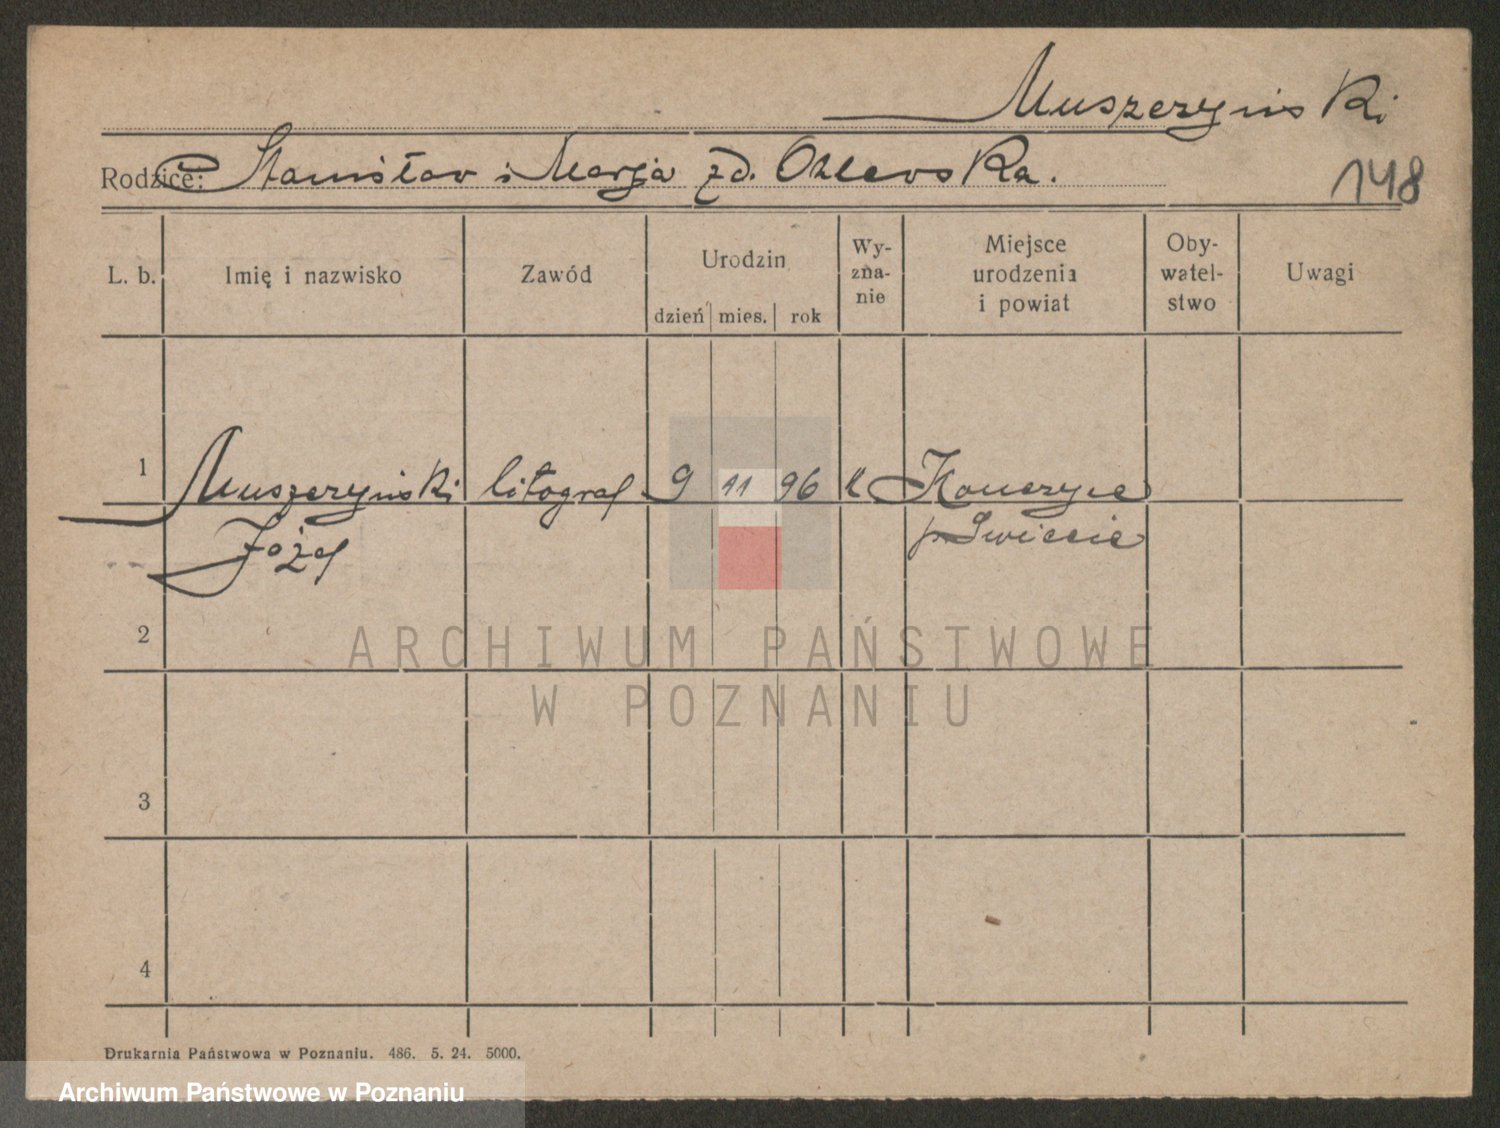 Muszczyński
Rodzice: Stanisław i Marja zd.
148
L. b. Imię i nazwisko Zawód Urodzin dzień mies. rok Wy-zna-nie Miejsce urodzenia i powiat Oby-watel-stwo Uwagi
1 Muszczyński litograf 9 11 96 k
Józef p Świecie
2
ARCHIWUM PAŃSTWOWE
W POZNANIU
3
4
Drukarnia Państwowa w Poznaniu. 486. 5. 24. 5000.
Archiwum Państwowe w Poznaniu